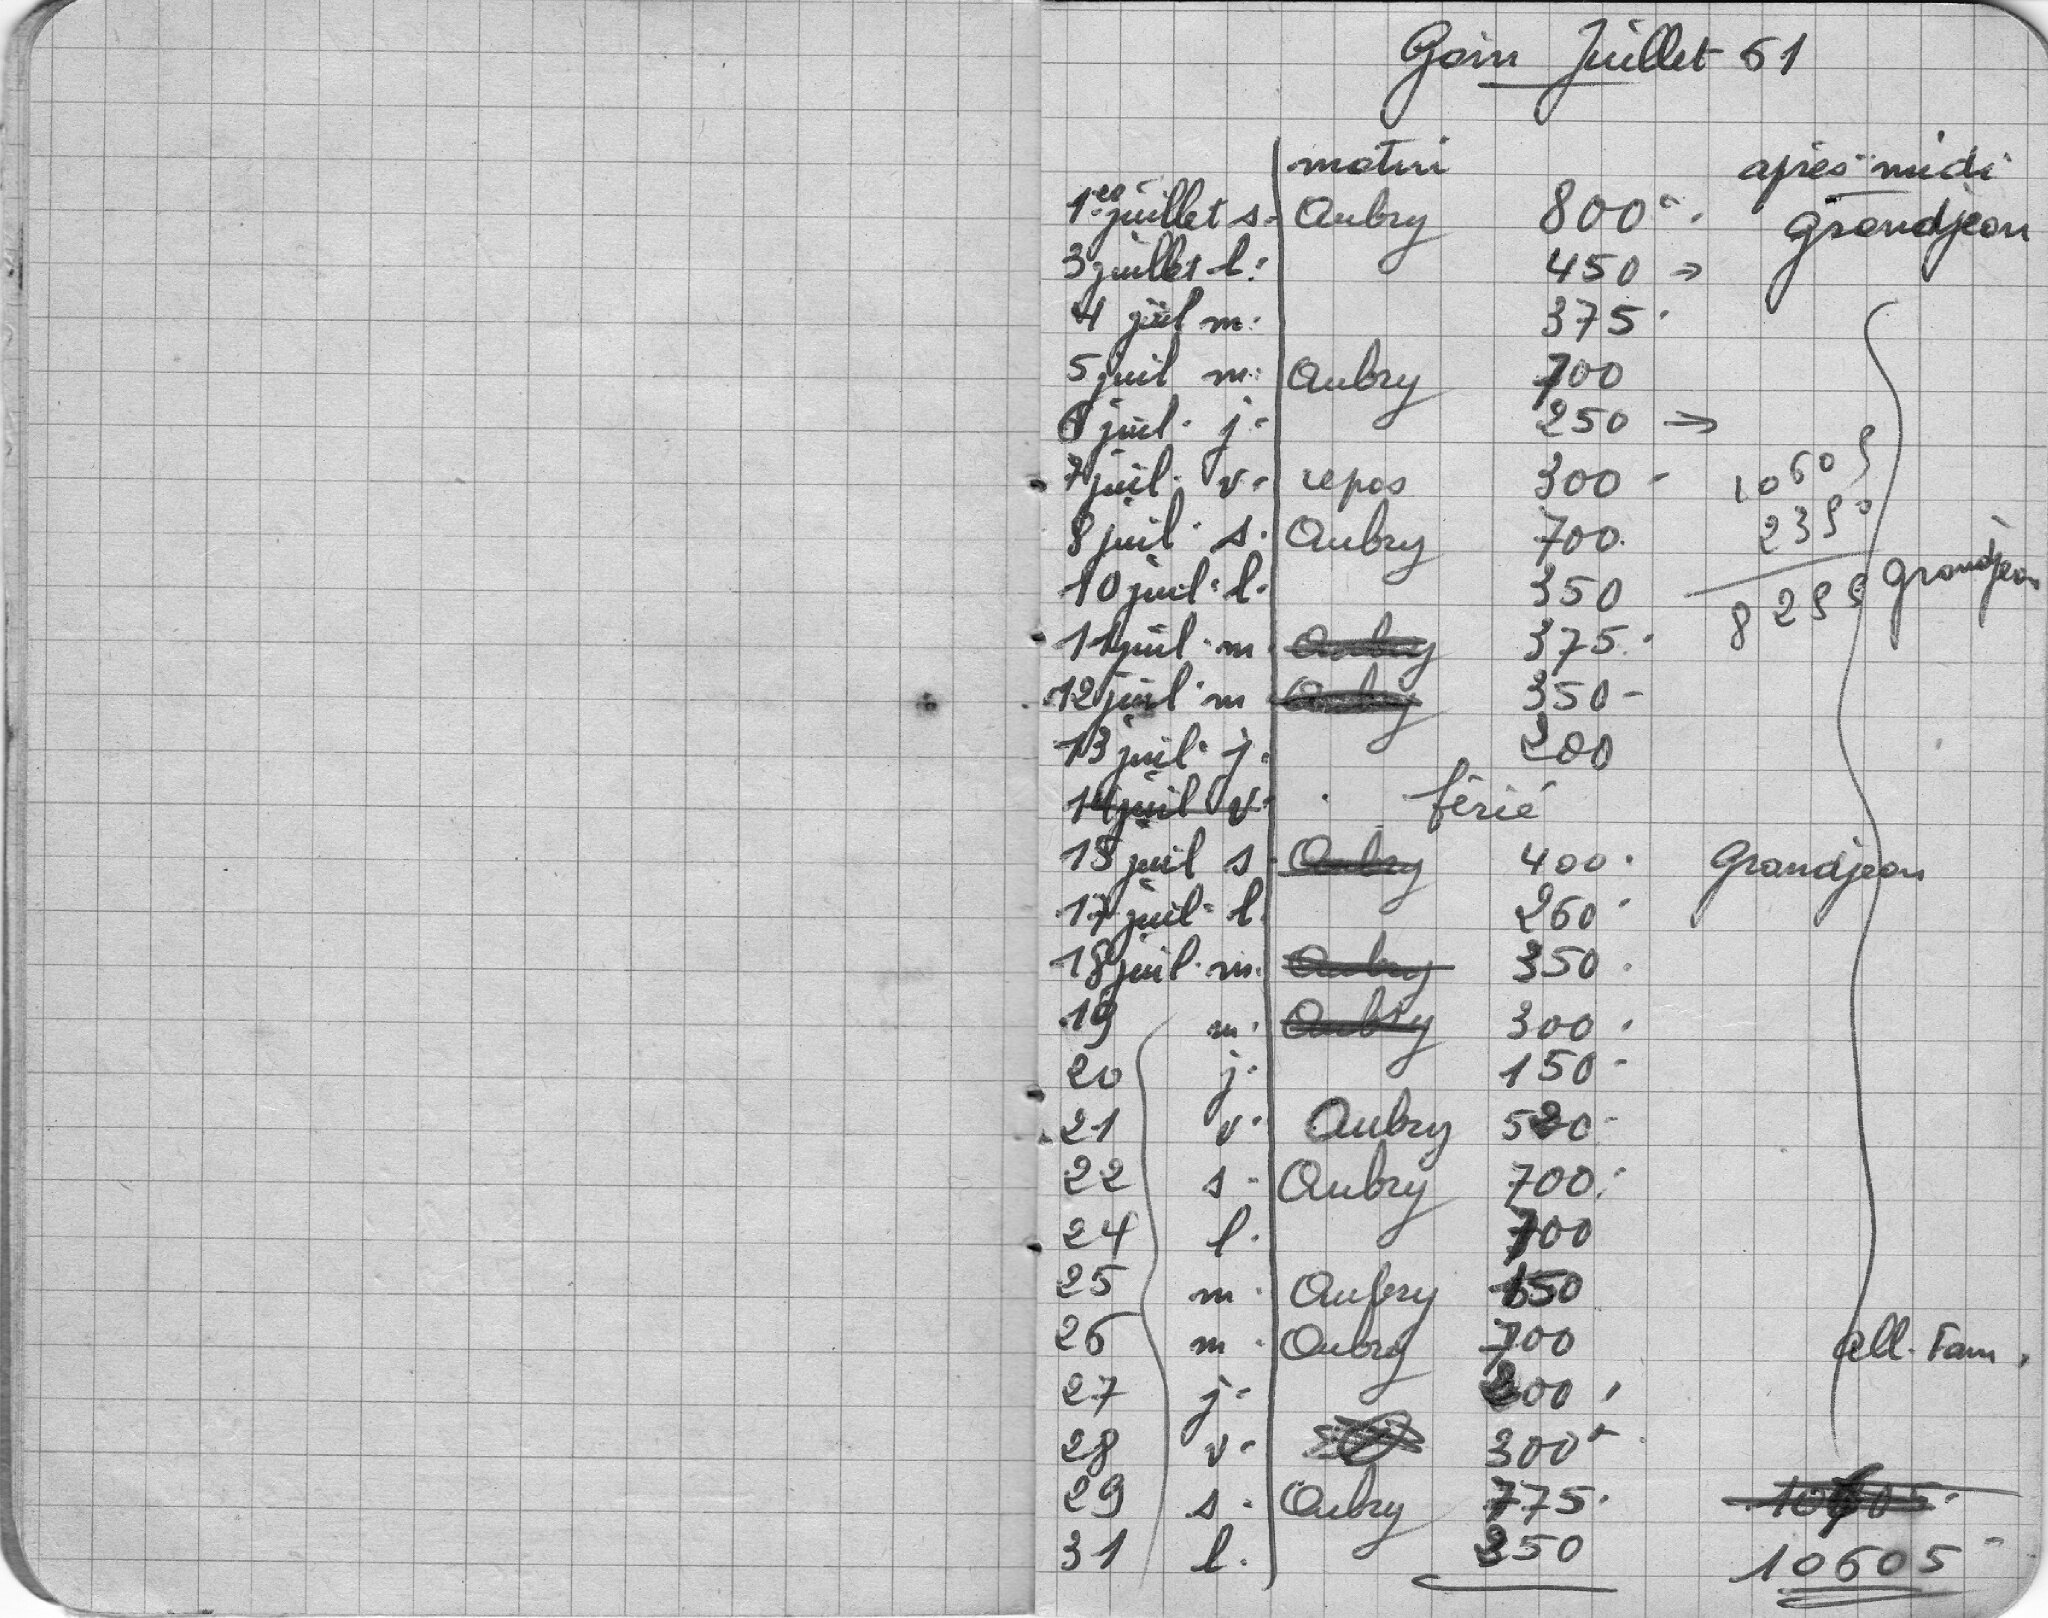 Gain Juillet 61
matin après-midi
1er juillet s. Aubry 800 Grandjean
3 juillet l. 450 →
4 juil m. 375
5 juil m. Aubry 700
6 juil. j. 250 →
7 juil. v. repos 300 - 10605
8 juil. s. Aubry 700. 2350
10 juil. l. 350 8255 Grandjean
11 juil. m Aubry 375.
12 juil. m Aubry 350-
13 juil. j. 200
14 juil v. férié
15 juil s. Aubry 400. Grandjean
17 juil. l. 260
18 juil. m. Aubry 350.
19 m. Aubry 300.
20 j. 150-
21 v. Aubry 520-
22 s. Aubry 700.
24 l. 700
25 m. Aubry 150
26 m. Aubry 700 all. Fam.
27 j. 200
28 v. 300
29 s. Aubry 775.
31 l. 350 10605